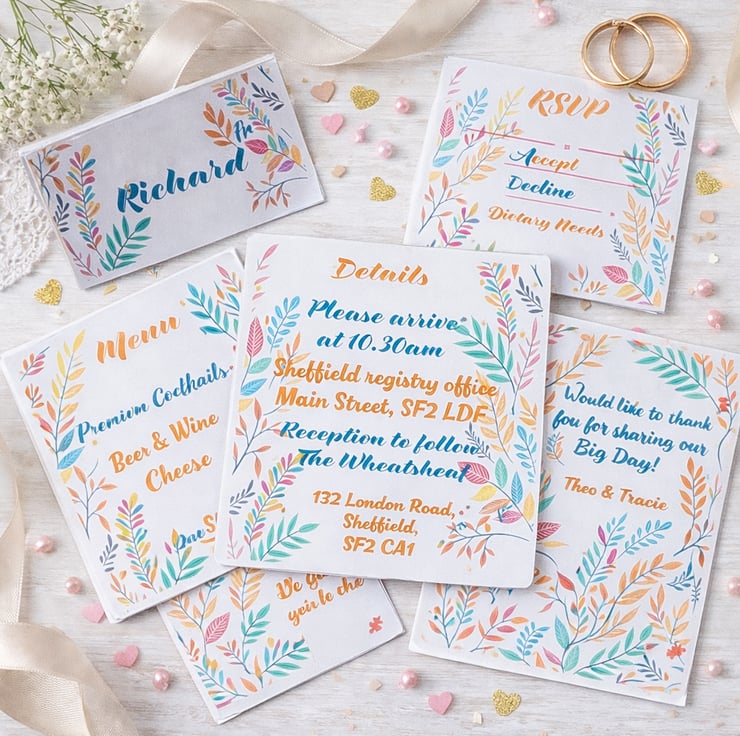 Richard
RSVP
Accept
Decline
Dietary Needs
Menu
Premium Cocthails
Beer & Wine
Cheese
Details
Please arrive
at 10.30am
Sheffield registry office
Main Street, SF2 LDF
Reception to follow
The Wheatsheaf
132 London Road,
Sheffield,
SF2 CA1
Would like to thank
you for sharing our
Big Day!
Theo & Tracie